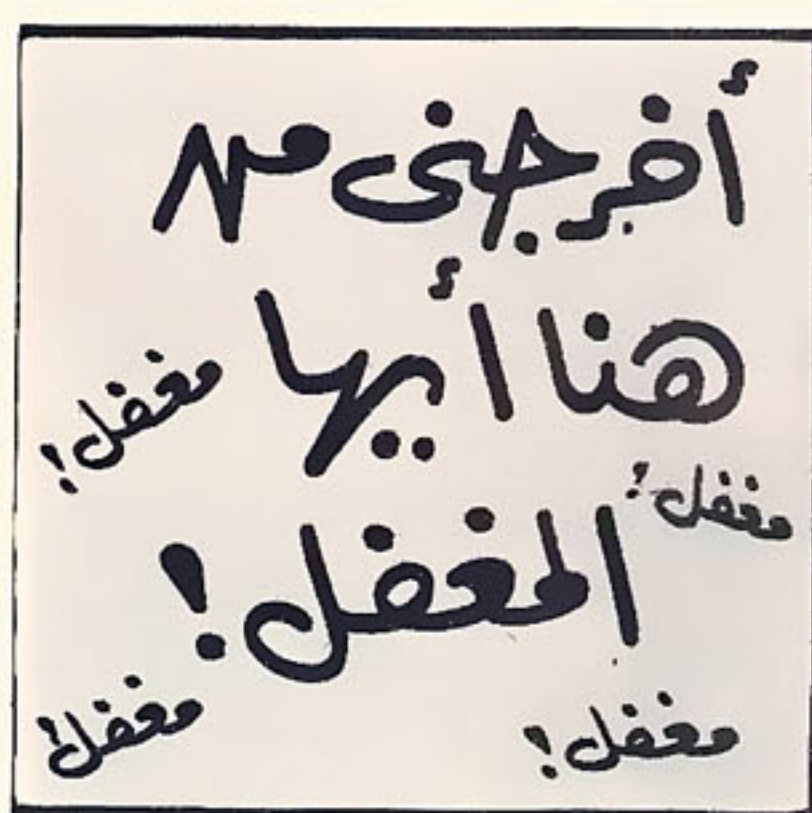 أخرجنى من
هنا أيها
مغفل!
مغفل!
المغفل!
مغفل!
مغفل!